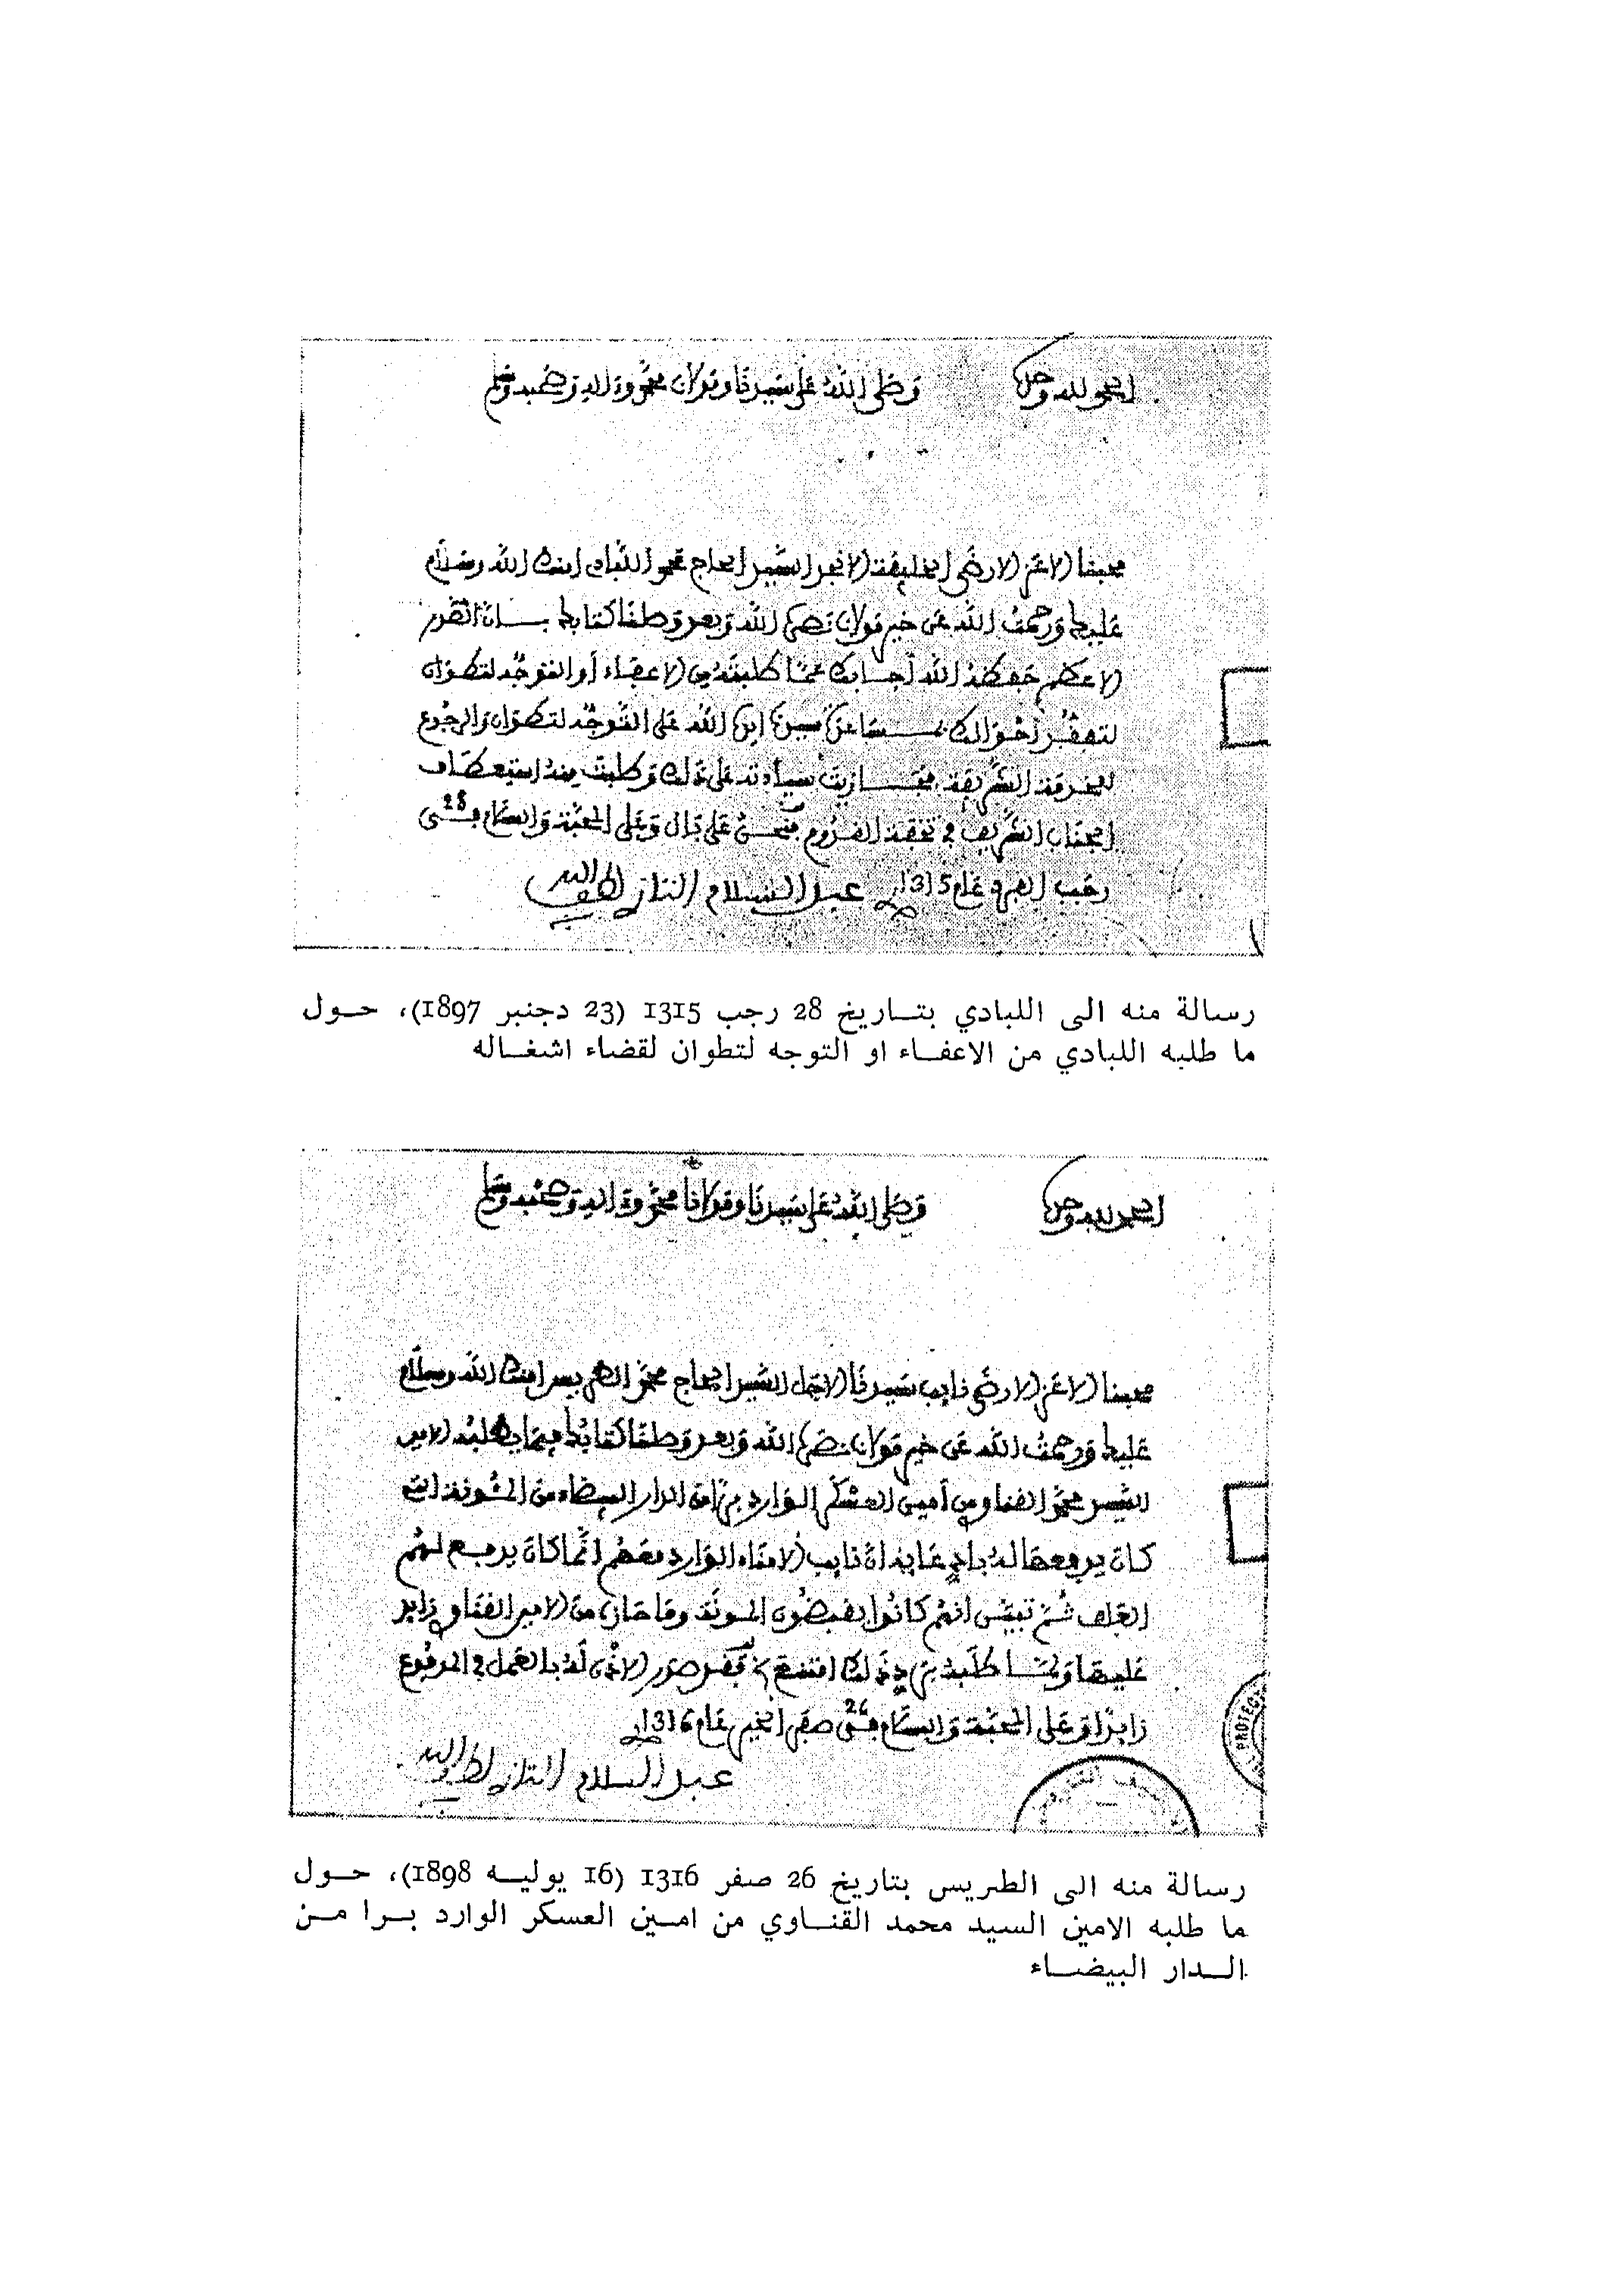 الحمد لله وحده
وصلى الله على سيدنا ومولانا محمد وءاله وصحبه وسلم
محبنا الاعز الارضى الخليفة الانجد السيد الحاج محمد اللبادي امنك الله وسلام
عليك ورحمت الله عن خير مولانا نصره الله وبعد وصلنا كتابك بان المقدم
الاعظم حفظه الله أجابك عما طلبته من الاعفاء أو التوجه لتطوان
لتفقد أحوالك بمساعدة سيدنا ايده الله على التوجه لتطوان والرجوع
للخدمة الشريفة سيادته على ذلك وطلبت منه استعطاف
الجناب الشريف في الفردوم فنحن على بال وعلى المحبة والسلام في 28
رجب الفرد عام 1315
عبد السلام التازي لطف الله به
رسالة منه الى اللبادي بتاريخ 28 رجب 1315 (23 دجنبر 1897)، حول
ما طلبه اللبادي من الاعفاء او التوجه لتطوان لقضاء اشغاله
الحمد لله وحده
وصلى الله على سيدنا ومولانا محمد وءاله وصحبه وسلم
محبنا الاعز الارضى نايب سيدنا الاجل السيد الحاج محمد الطريس امنك الله وسلام
عليك ورحمت الله عن خير مولانا نصره الله وبعد وصلنا كتابك فيما طلبه الامين
السيد محمد القناوي من أمين العسكر الوارد برا من الدار البيضاء من المونة التي
كان يدفعها له نايب الامناء الوارد معهم انما كان يدفع لهم
العلف ثم تبين انهم كانوا يقبضون المونة وما حازه من الامين القناوي زايد
عليها وما طلبه من ذلك فقد صدر الاذن له بالعمل في المدفوع
زايدا وعلى المحبة والسلام في 26 صفر الخير عام 1316
عبد السلام التازي لطف الله به
PROTEC
رسالة منه الى الطريس بتاريخ 26 صفر 1316 (16 يوليه 1898)، حول
ما طلبه الامين السيد محمد القناوي من امين العسكر الوارد برا من
الدار البيضاء